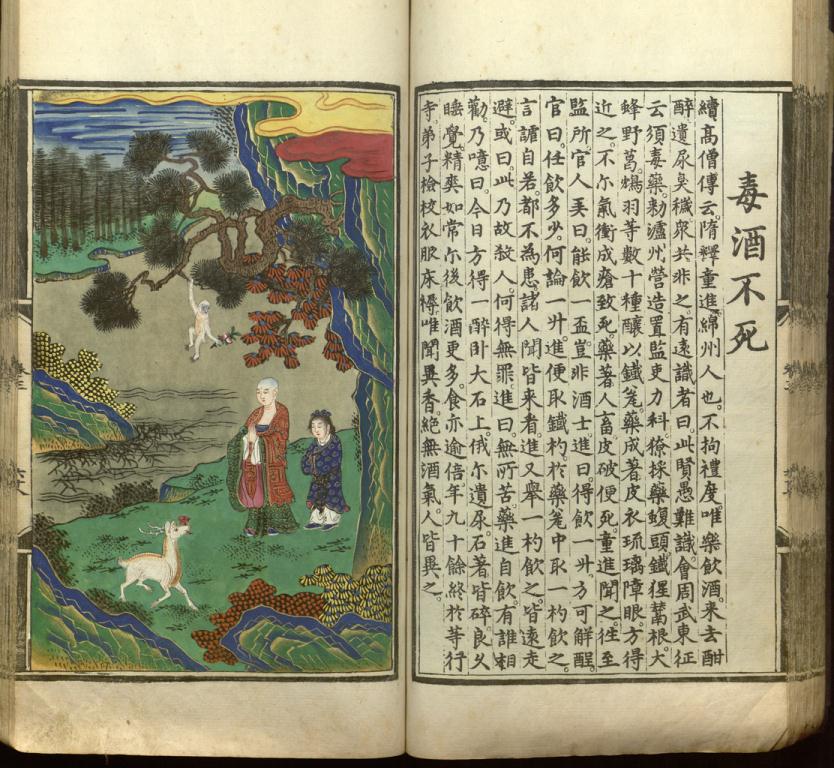 毒酒不死
續高僧傳云。隋釋童進。綿州人也。不拘禮度。唯樂飲酒。來去酣
醉。遺尿臭穢。眾共非之。有遠識者曰。此賢愚難識。會周武東征
云須毒藥。勅瀘州營造置監吏力科獠採藥蝮頭鐵猩䓤根。大
蜂野葛。鴆羽等數十種釀以鐵瓮。藥成著皮衣琉璃障眼。方得
近之。不尒氣衝成瘡致死。藥著人畜皮破便死。童進聞之。往至
監所。官人弄曰。能飲一盃。豈非酒士。進曰。得飲一升。方可解酲。
官曰。任飲多少。何論一升。進便取鐵杓。於藥瓮中取一杓飲之。
言謔自若。都不為患。諸人聞皆來看。進又舉一杓飲之。皆遠走
避。或曰。此乃故殺人。何得無罪。進曰。無所苦。藥進自飲。有誰相
勸。乃噫曰。今日方得一醉。卧大石上。俄尒遺尿。石著皆碎。良久
睡覺。精爽如常。尒後飲酒更多。食亦逾倍。年九十餘。終於等行
寺。弟子檢校衣服床褥。唯聞異香。絕無酒氣。人皆異之。